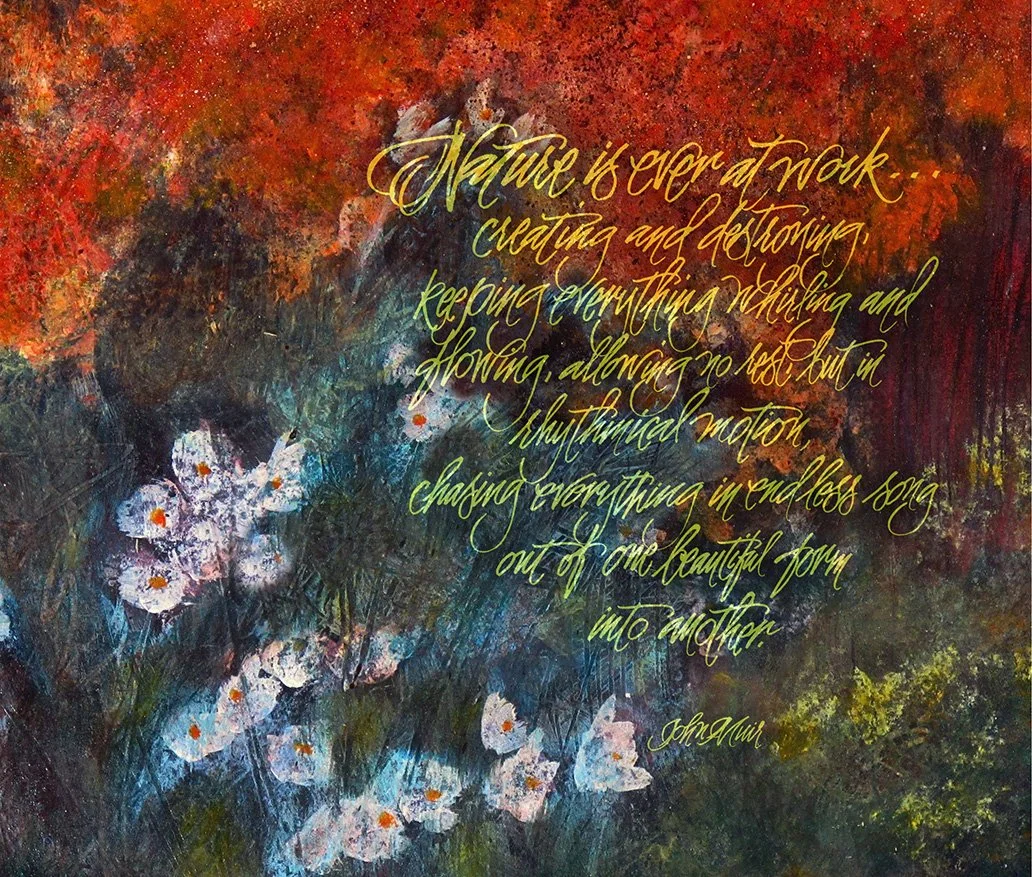 Nature is ever at work...
creating and destroying,
keeping everything whirling and
flowing, allowing no rest, but in
rhythmical motion,
chasing everything in endless song
out of one beautiful form
into another.
John Muir